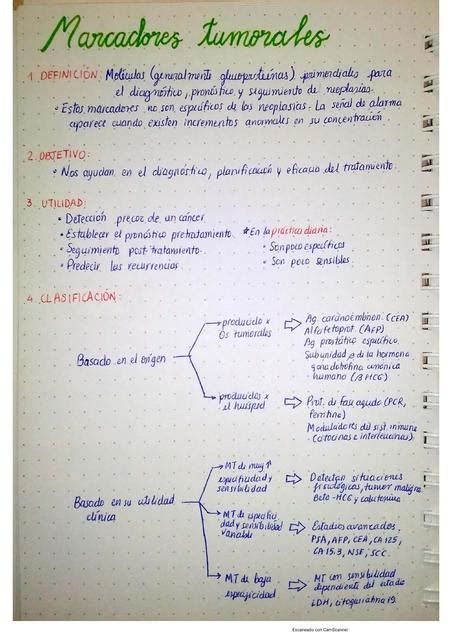 Marcadores tumorales
1. DEFINICIÓN: Moléculas (generalmente glucoproteínas) primordiales para
el diagnóstico, pronóstico y seguimiento de neoplasias.
• Estos marcadores no son específicos de las neoplasias. La señal de alarma
aparece cuando existen incrementos anormales en su concentración.
2. OBJETIVO:
• Nos ayudan en el diagnóstico, planificación y eficacia del tratamiento.
3. UTILIDAD:
• Detección precoz de un cáncer.
• Establecer el pronóstico pretratamiento. * En la práctica diaria:
• Seguimiento post-tratamiento. • Son poco específicos
• Predecir las recurrencias. • Son poco sensibles.
4. CLASIFICACIÓN:
Basado en el origen
producido x
Cs tumorales
Ag. carcinoembrion. (CEA)
Alfafetoprot. (AFP)
Ag prostático específico.
Subunidad β de la hormona
gonadotrofina corionica
humano (βHCG)
producidos x
el huésped
Prot. de fase aguda (PCR,
ferritina)
Moduladores del sist. inmune
(citocinas e interleucinas)
Basado en su utilidad
clínica
MT de muy ↑
especificidad y
sensibilidad
Detectan situaciones
fisiológicas, tumor maligno.
Beta-HCG y calcitonina.
MT de especifici
dad y sensibilidad
variable
Estadíos avanzados.
PSA, AFP, CEA, CA 125,
CA 15.3, NSE, SCC.
MT de baja
especificidad
MT con sensibilidad
dependiente del estadío
LDH, citoqueratina 19.
Escaneado con CamScanner